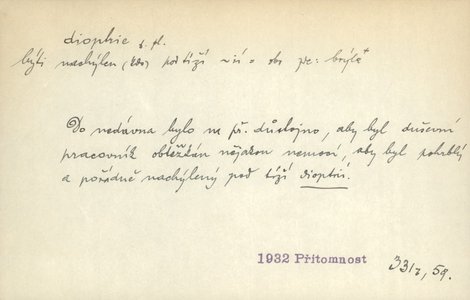 dioptrie ž. pl.
býti nachýlen (kdo) pod tíží ~ií = obr. pe: brýlí
Do nedávna bylo na př. důstojno, aby byl duševní
pracovník obtěžkán nějakou nemocí, aby byl pohrblý
a pořádně nachýlený pod tíží dioptrií.
1932 Přítomnost 33/7, 59.